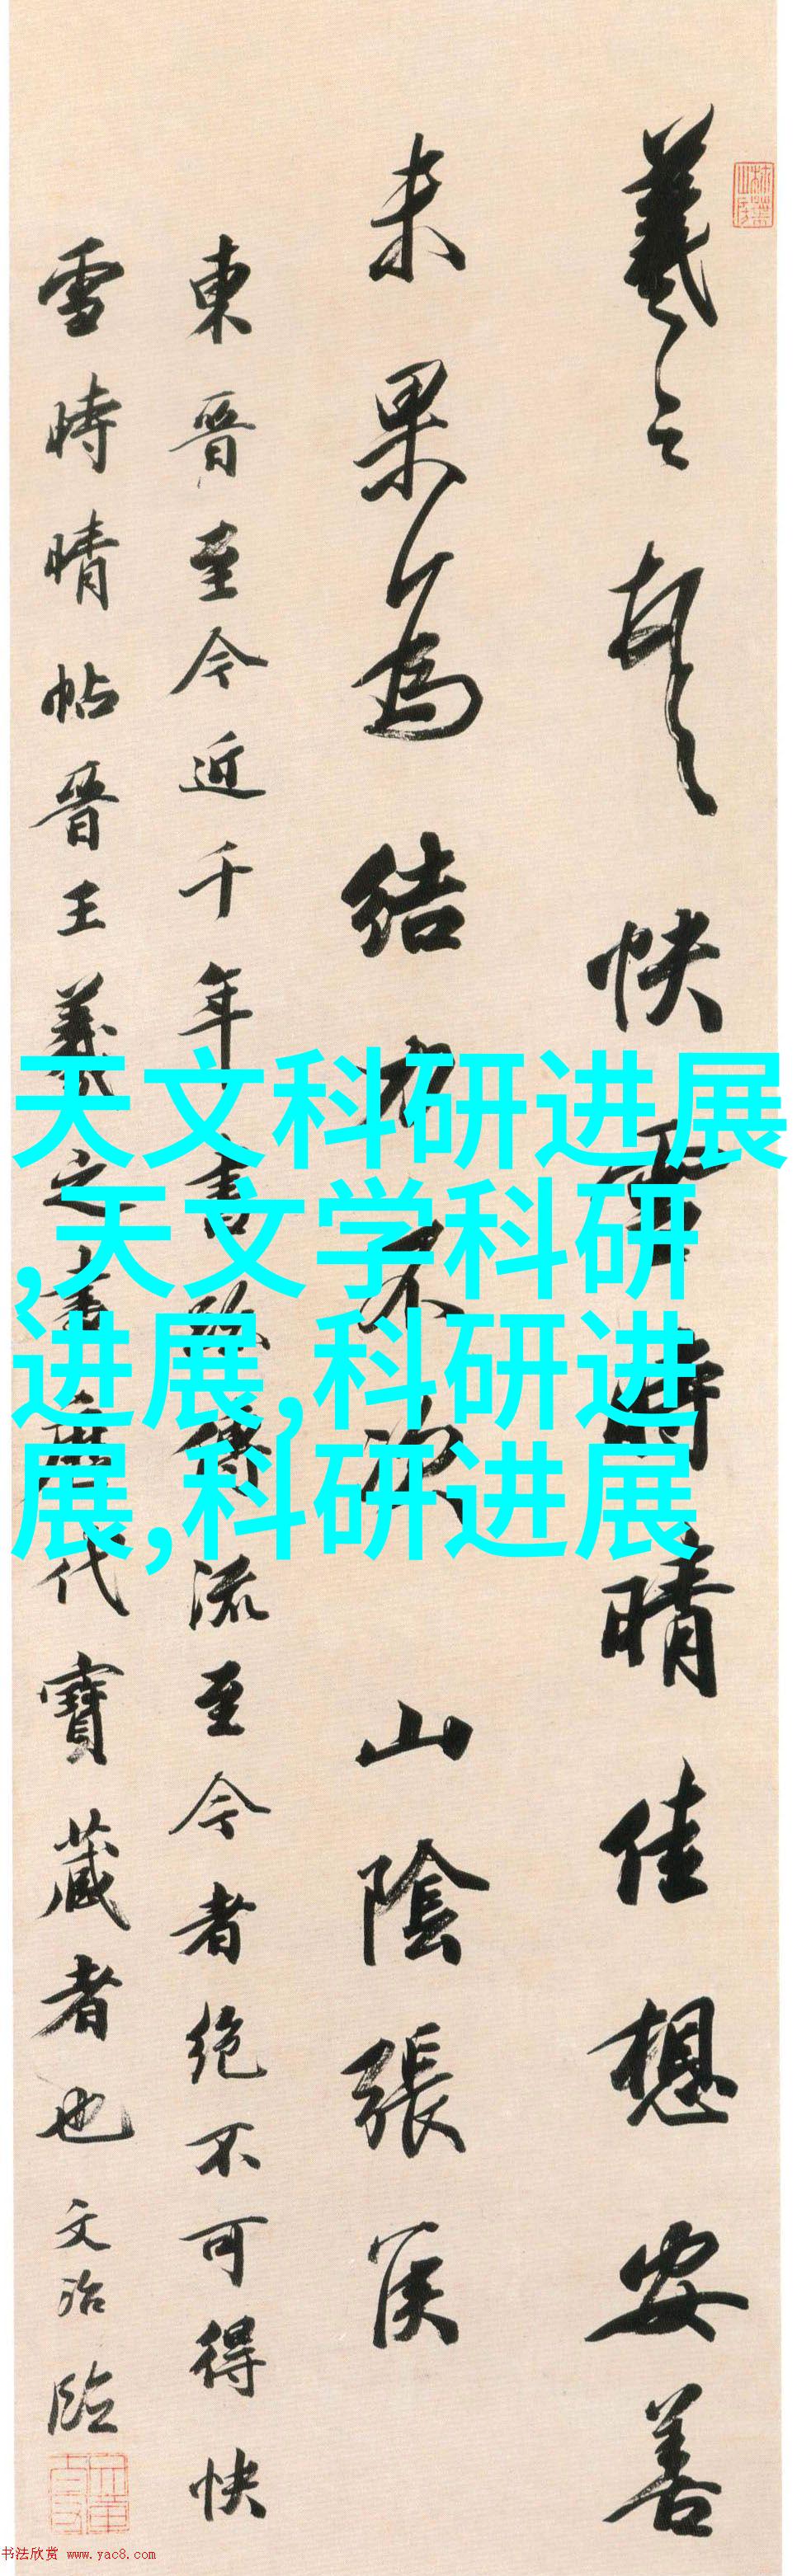 羲之頓首快雪時晴佳想安善
未果為結力不次 山陰張侯
東晉至今近千年書跡傳流至今者絶不可得快
雪時晴帖晉王羲之書歷代寶藏者也文治臨
天文科研进展
,天文学科研
进展,科研进
展,科研进展
书法欣赏 www.yac8.com